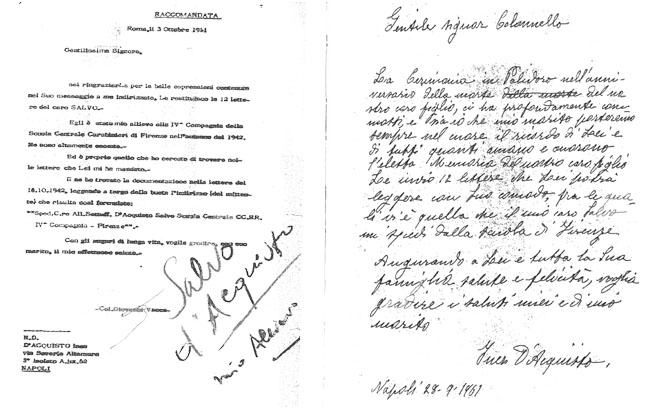 RACCOMANDATA
Roma, li 3 Ottobre
Gentilissima Signora,
nel ringraziarLa per le belle espressioni contenute
nel Suo messaggio a me indirizzato, Le restituisco le 12 lettere
del caro SALVO.
Egli è stato mio allievo alla IV^ Compagnia della
Scuola Centrale Carabinieri di Firenze nell'autunno del 1942.
Ne sono altamente onorato.
Ed è proprio quello che ho cercato di trovare nelle
lettere che Lei mi ha mandato.
E ne ho trovato la documentazione nella lettera del
18.10.1942, leggendo a tergo della busta l'indirizzo (del mittente)
che risulta così formulato:
IV^ Compagnia - Firenze
Con gli auguri di lunga vita, voglia gradire, con suo
marito, il mio affettuoso saluto.
-Col.Giovanni
SALVO
D'Acquisto
mio Allievo
N.D.
D'ACQUISTO Ines
via Saverio Altamura
NAPOLI
Gentile signor Colonnello
La Cerimonia in Palidoro nell'anni-
versario della morte della morte del no
stro caro figlio, ci ha profondamente com-
mossi, e sia io che mio marito porteremo
sempre nel cuore il ricordo di Lei e
di tutti quanti amano e onorano
l'eletta Memoria del nostro caro figlio
Le invio 12 lettere che Lei potrà
leggere con Suo comodo, fra le qua-
li vi è quella che il mio caro Salvo
mi spedì dalla scuola di Firenze
Augurando a Lei e tutta la Sua
famiglia salute e felicità, voglia
gradire i saluti miei e di mio
marito
Ines D'Acquisto,
Napoli 28-9-1961